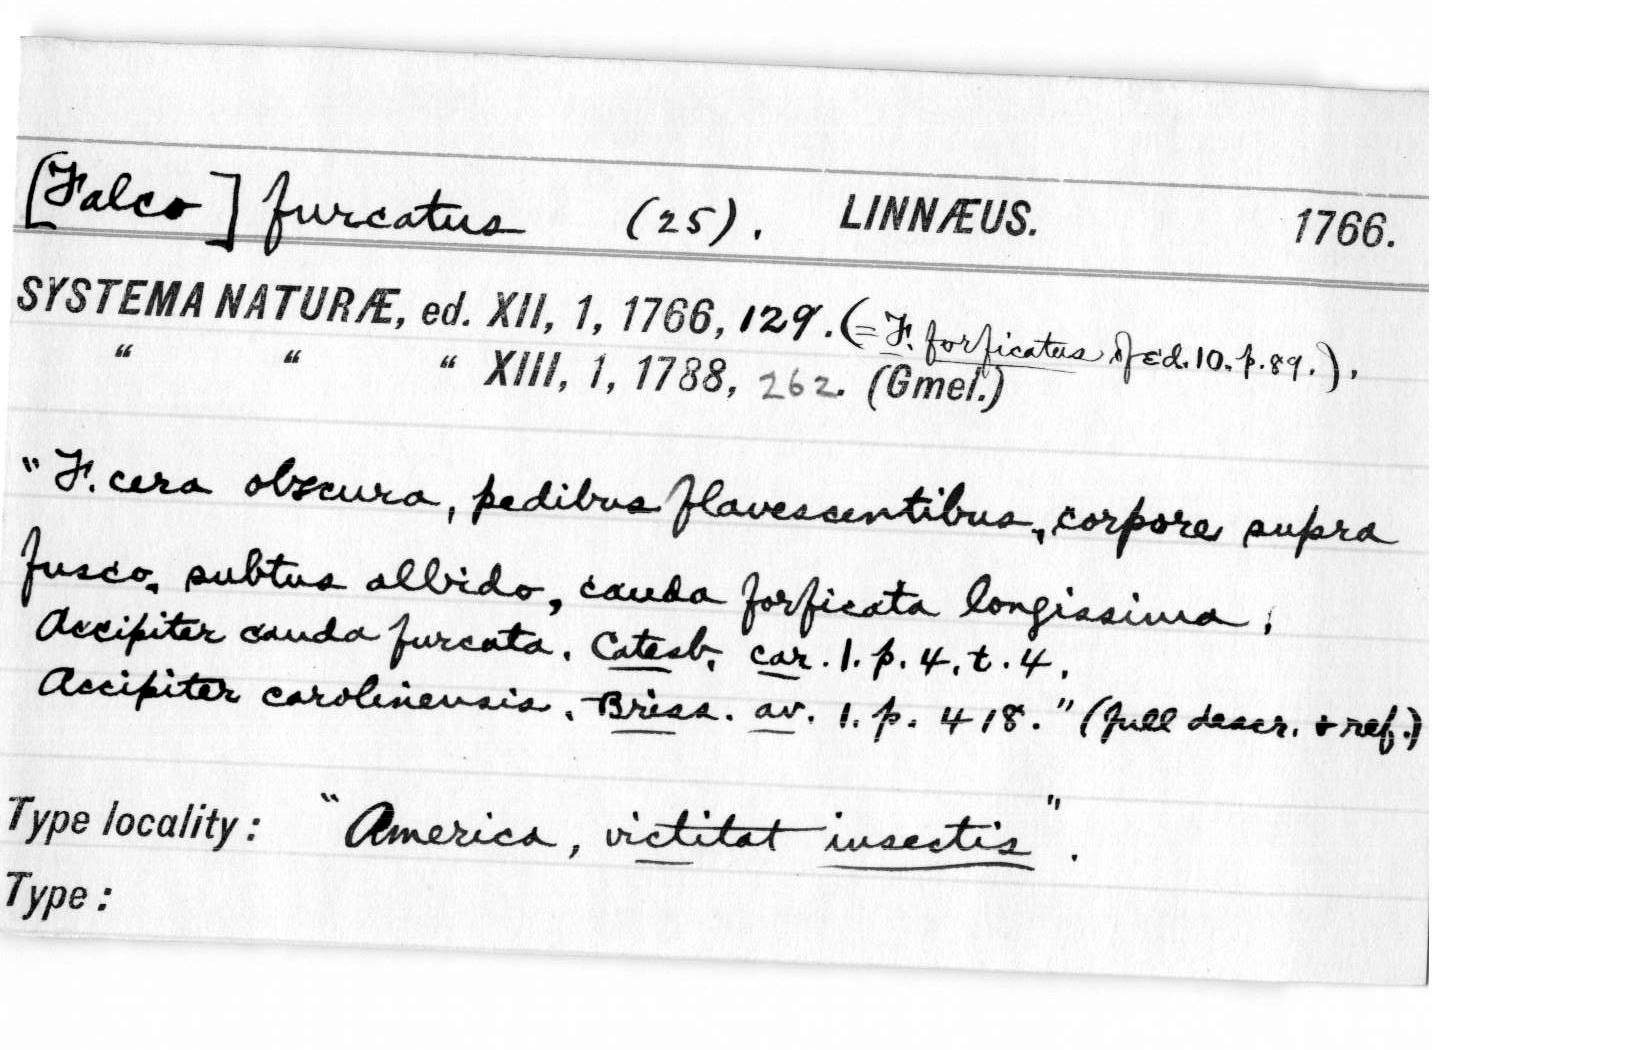 [Falco] furcatus (25). LINNÆUS. 1766.
SYSTEMA NATURÆ, ed. XII, 1, 1766, 129. (= F. forficatus of Ed. 10. p. 89.).
" " " XIII, 1, 1788, 262. (Gmel.)
"F. cera obscura, pedibus flavescentibus, corpore supra
fusco, subtus albido, cauda forficata longissima.
Accipiter cauda furcata. Catesb. car. 1. p. 4. t. 4.
Accipiter carolinensis. Briss. av. 1. p. 418." (full descr. & ref.)
Type locality: "America, victitat insectis".
Type: